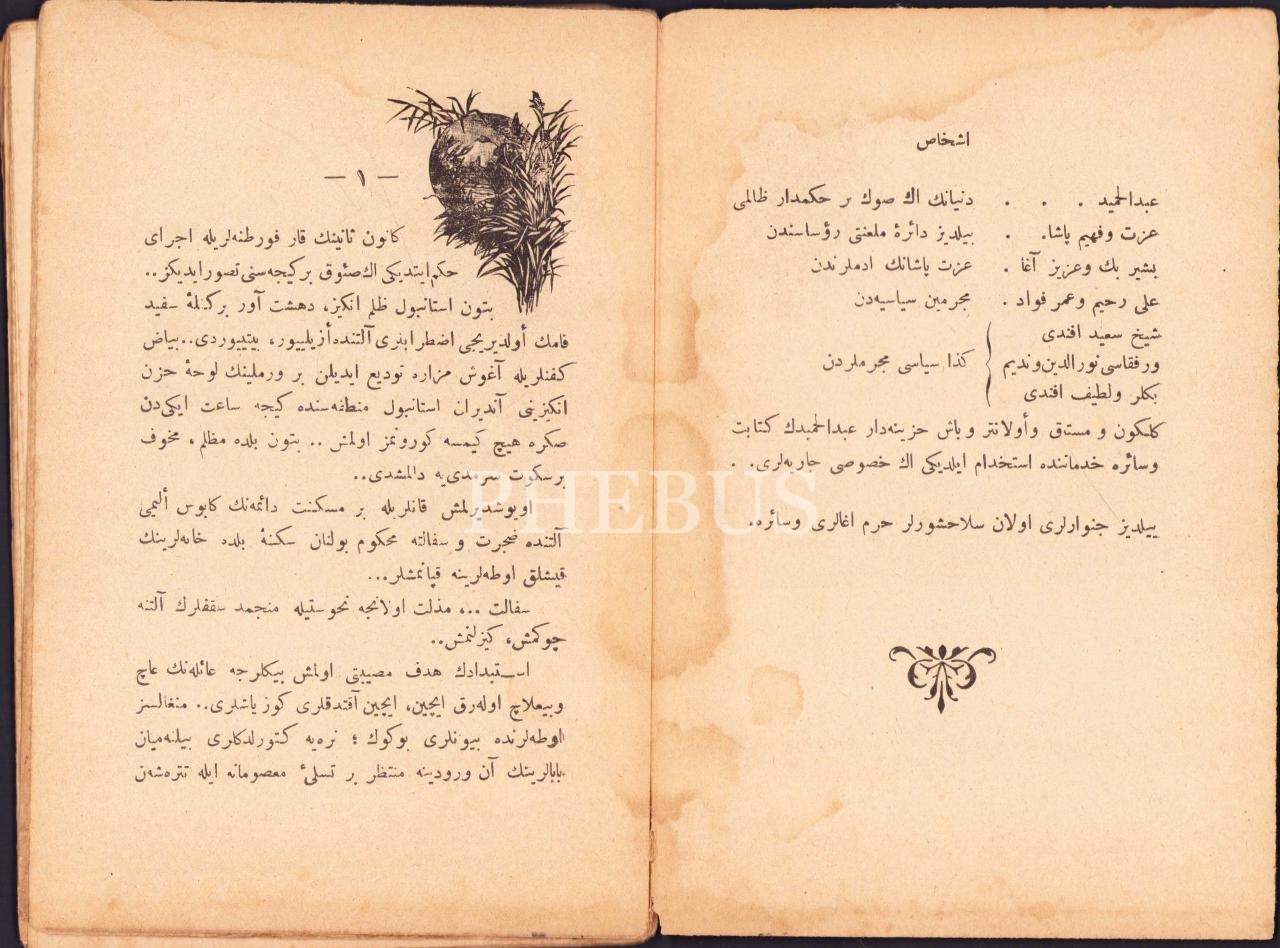 اشخاص
عبدالحمید . . . دنیانك اك صوك بر حكمدار ظالمی
عزت وفهیم پاشا. . ییلدیز دائرهٔ ملعنتی رؤساسندن
بشیر بك وعزیز آغا . عزت پاشانك ادملرندن
علی رحیم وعمر فواد . مجرمین سیاسیه‌دن
شیخ سعید افندی
ورفقاسی نورالدین وندیم } كذا سیاسی مجرملردن
بكلر ولطیف افندی
كلكون و مستاق وأولانتر وباش حزینه‌دار عبدالحمیدك كتابت
وسائره خدماتنده استخدام ایلدیكی اك خصوصی جاریه‌لری. .
ییلدیز جنوارلری اولان سلاحشورلر حرم اغالری وسائره.
— ١ —
كانون ثانینك قار فورطنه‌لریله اجرای
حكم ایتدیكی اك صئوق بر كیجه‌سنی تصور ایدیكز..
بتون استانبول ظلم انكیز، دهشت آور بر كتلهٔ سفید
فامك أولدیریجی اضطرابلری آلتنده أزیلییور، بیتییوردی..بیاض
كفنلریله آغوش مزاره تودیع ایدیلن بر ورملینك لوحهٔ حزن
انكیزینی آندیران استانبول منطقه‌سنده كیجه ساعت ایكی‌دن
صكره هیچ كیمسه كورونمز اولمش .. بتون بلده مظلم، مخوف
بر سكوت سرمدی‌یه دالمشدی..
اویوشدیرلمش قانلریله بر مسكنت دائمه‌نك كابوس ألیمی
آلتنده ضجرت و سفالته محكوم بولنان سكنهٔ بلده خانه‌لرینك
قیشلق اوطه‌لرینه قپانمشلر...
سفالت ..، مذلت اولانجه نحوستیله منجمد سقفلرك آلتنه
چوكمش، كیزلنمش..
استبدادك هدف مصیبتی اولمش بیكلرجه عائله‌نك عاچ
وبیعلاچ اوله‌رق ایچین، ایچین آقتدقلری كوز یاشلری.. منغالسز
اوطه‌لرنده بیونلری بوكوك ؛ نره‌یه كتورلدكلری بیلنه‌میان
بابالرینك آن ورودینه منتظر بر تسلیٔ معصومانه ایله تتره‌شه‌ن
PHEBUS